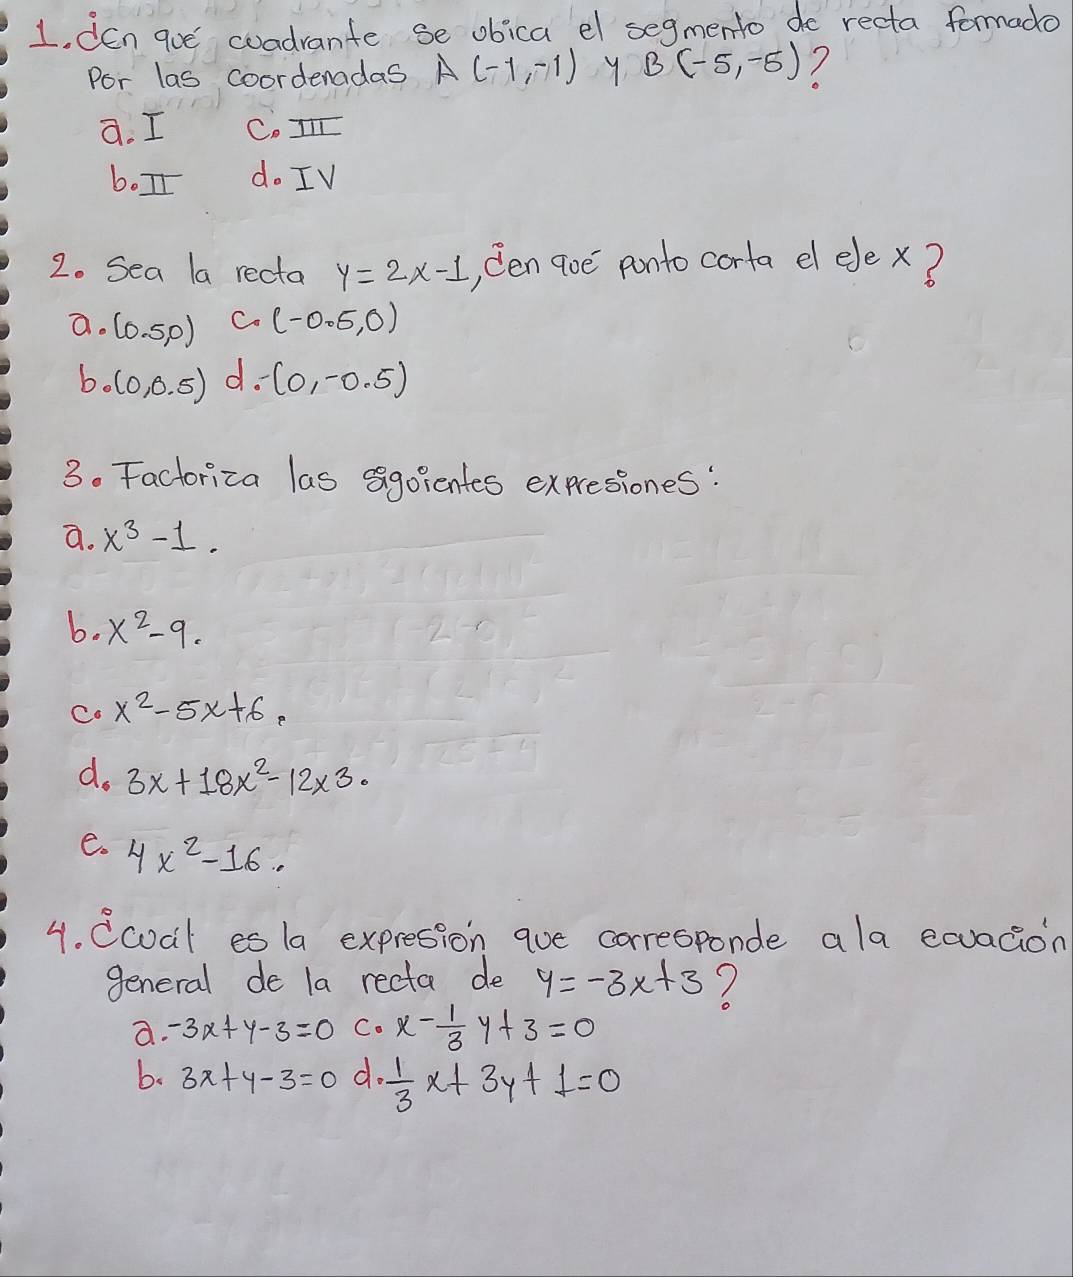 1. ¿En qué cuadrante se ubica el segmento de recta formado
Por las coordenadas A (-1,-1) y B (-5,-5)?
a. I c. III
b. II d. IV
2. Sea la recta y = 2x-1, ¿en qué punto corta el eje x?
a. (0.5,0) c. (-0.5,0)
b. (0,0.5) d. (0,-0.5)
3. Factoriza las siguientes expresiones:
a. x³ - 1.
b. x² - 9.
c. x² - 5x + 6.
d. 3x + 18x² - 12x3.
e. 4x² - 16.
4. ¿cuál es la expresión que corresponde a la ecuación
general de la recta de y = -3x + 3?
a. -3x + y - 3 = 0 c. x - 1/3 y + 3 = 0
b. 3x + y - 3 = 0 d. 1/3 x + 3y + 1 = 0